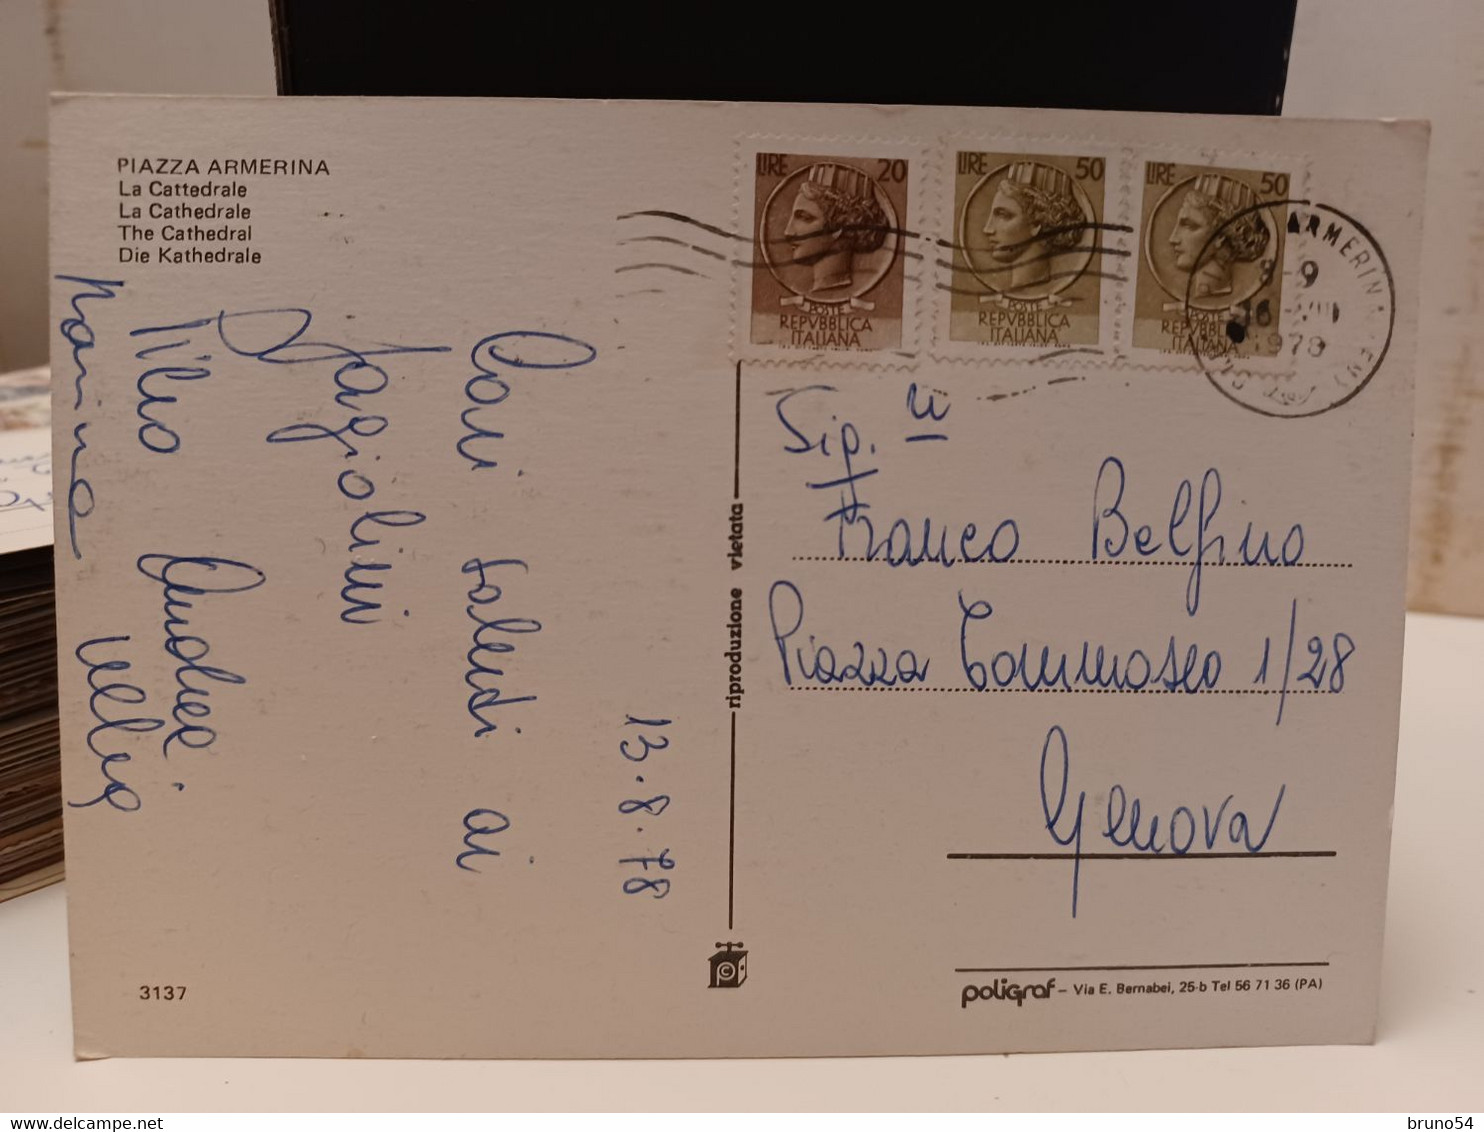 PIAZZA ARMERINA
La Cattedrale
La Cathedrale
The Cathedral
Die Kathedrale
LIRE 20
POSTE
REPVBBLICA
ITALIANA
LIRE 50
POSTE
REPVBBLICA
ITALIANA
LIRE 50
POSTE
REPVBBLICA
ITALIANA
ARMERINA
8-9
16 VIII
1978
13.8.78
Cari saluti ai
Fagiolini
Andrea
Marina
Franco Belfino
Piazza Tommaseo 1/28
Genova
riproduzione vietata
3137
poligraf – Via E. Bernabei, 25-b Tel 56 71 36 (PA)
bruno54